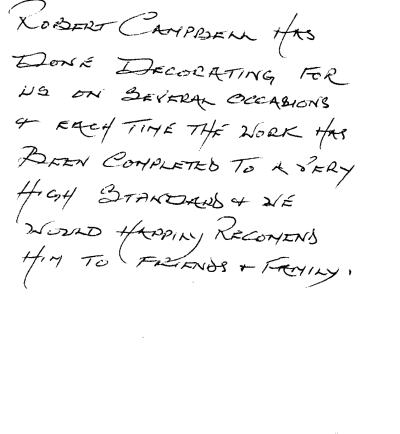 ROBERT CAMPBELL HAS
DONE DECORATING FOR
US ON SEVERAL OCCASIONS
& EACH TIME THE WORK HAS
BEEN COMPLETED TO A VERY
HIGH STANDARD & WE
WOULD HAPPILY RECOMEND
HIM TO FRIENDS & FAMILY.